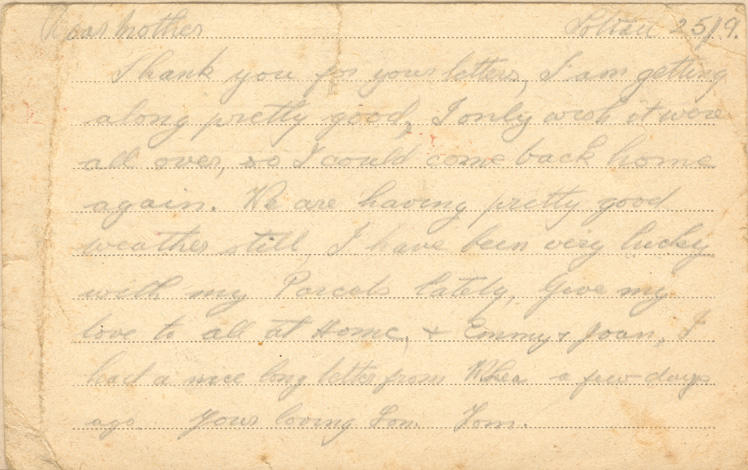 Dear Mother 25/9.
Thank you for your letters, I am getting
along pretty good, I only wish it were
all over, so I could come back home
again. We are having pretty good
weather still, I have been very lucky
with my Parcels lately, Give my
love to all at Home, & Emmy & Joan, I
had a nice long letter from a few days
ago. Your loving Son. Tom.